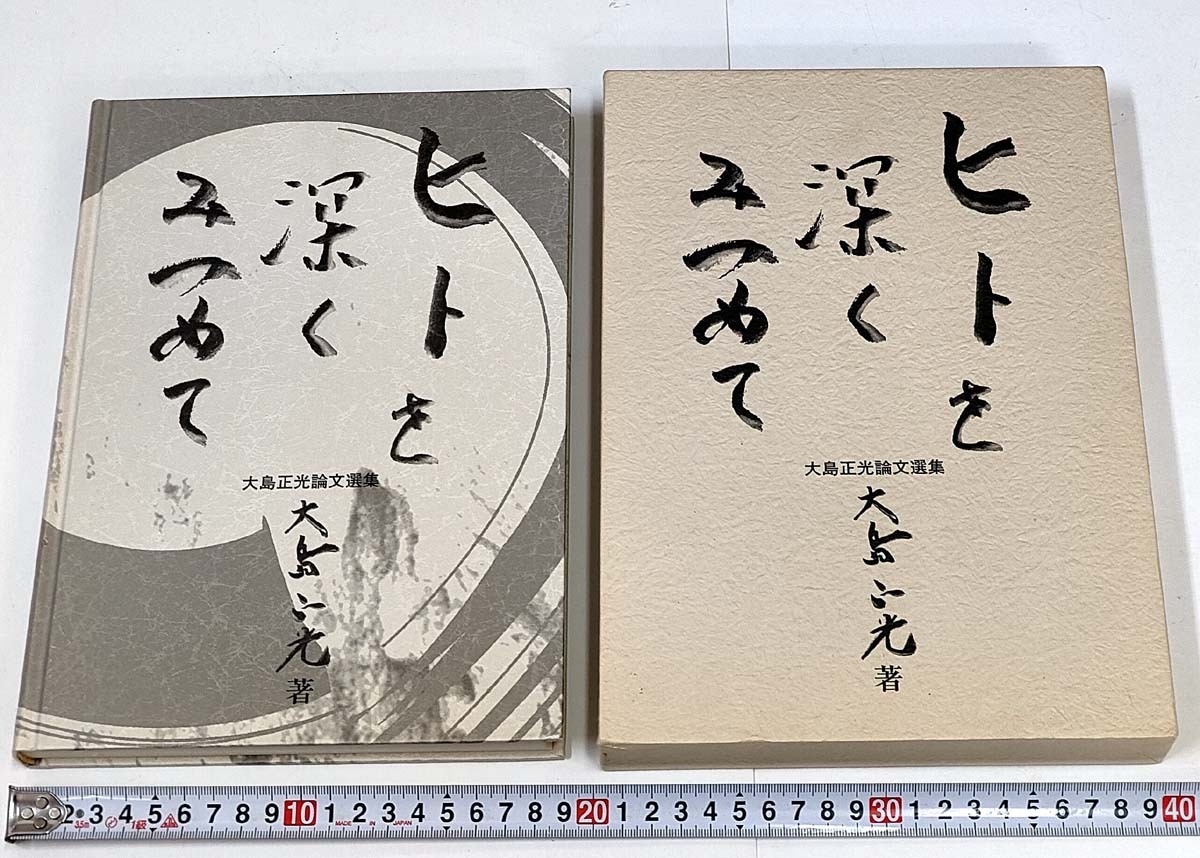 ヒトを
深く
みつめて
大島正光論文選集
大島正光
著
ヒトを
深く
みつめて
大島正光論文選集
大島正光
著
2 3 4 5 6 7 8 9 10 1 2 3 4 5 6 7 8 9 20 1 2 3 4 5 6 7 8 9 30 1 2 3 4 5 6 7 8 9 40
3.5m 1級 MADE IN JAPAN